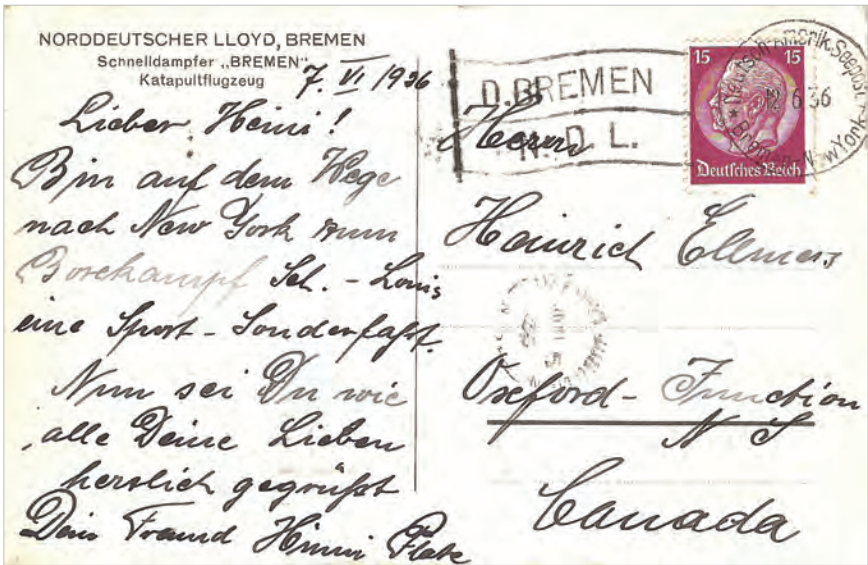 NORDDEUTSCHER LLOYD, BREMEN
Schnelldampfer „BREMEN"
Katapultflugzeug
7. VI 1936
Lieber Heini!
Bin auf dem Wege
nach New York zum
Boxkampf Sch. - Louis
eine Sport-Sonderfahrt.
Nun sei Du wie
alle Deine Lieben
herzlich gegrüßt
Dein Freund Hinni Plate
D. BREMEN
N. D. L.
15 15
Deutsches Reich
Deutsch-Amerik. Seepost
12 6 36
Bremen-New York
Herrn
Heinrich Ellmers
Oxford-Junction
N S
Canada